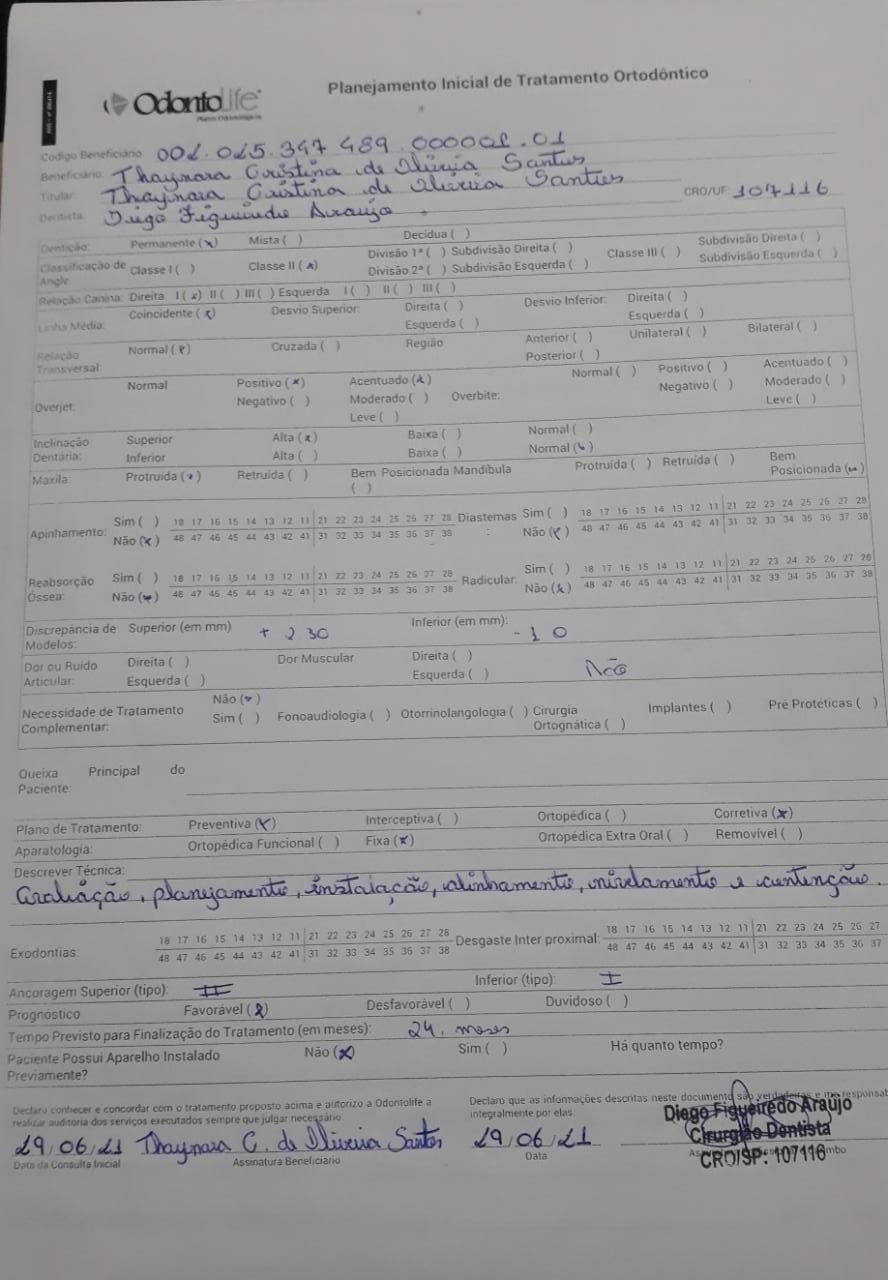 OdontoLife
Planejamento Inicial de Tratamento Ortodôntico
Código Beneficiário: 001.025.347 489.000001.01
Beneficiário: Thaynara Cristina de Oliveira Santos
Titular: Thaynara Cristina de Oliveira Santos
Dentista: Diego Figueiredo Araujo CRO/UF: 107116
Dentição: Permanente (x) Mista ( ) Decídua ( )
Classificação de Angle: Classe I ( ) Classe II (x) Divisão 1ª ( ) Subdivisão Direita ( ) Classe III ( ) Subdivisão Direita ( )
Divisão 2ª ( ) Subdivisão Esquerda ( ) Subdivisão Esquerda ( )
Relação Canina: Direita I (x) II ( ) III ( ) Esquerda I ( ) II ( ) III ( )
Linha Média: Coincidente (x) Desvio Superior: Direita ( ) Desvio Inferior: Direita ( )
Esquerda ( ) Esquerda ( )
Relação Transversal: Normal (x) Cruzada ( ) Região Anterior ( ) Unilateral ( ) Bilateral ( )
Posterior ( )
Overjet: Normal Positivo (x) Acentuado (x) Overbite: Normal ( ) Positivo ( ) Acentuado ( )
Negativo ( ) Moderado ( ) Negativo ( ) Moderado ( )
Leve ( ) Leve ( )
Inclinação Dentária: Superior Alta (x) Baixa ( ) Normal ( )
Inferior Alta ( ) Baixa ( ) Normal (x)
Maxila: Protruída (x) Retruída ( ) Bem Posicionada ( ) Mandíbula Protruída ( ) Retruída ( ) Bem Posicionada (x)
Apinhamento: Sim ( ) 18 17 16 15 14 13 12 11 21 22 23 24 25 26 27 28 Diastemas: Sim ( ) 18 17 16 15 14 13 12 11 21 22 23 24 25 26 27 28
Não (x) 48 47 46 45 44 43 42 41 31 32 33 34 35 36 37 38 Não (x) 48 47 46 45 44 43 42 41 31 32 33 34 35 36 37 38
Reabsorção Óssea: Sim ( ) 18 17 16 15 14 13 12 11 21 22 23 24 25 26 27 28 Radicular: Sim ( ) 18 17 16 15 14 13 12 11 21 22 23 24 25 26 27 28
Não (x) 48 47 46 45 44 43 42 41 31 32 33 34 35 36 37 38 Não (x) 48 47 46 45 44 43 42 41 31 32 33 34 35 36 37 38
Discrepância de Modelos: Superior (em mm) + 230 Inferior (em mm): - 10
Dor ou Ruído Articular: Direita ( ) Dor Muscular Direita ( ) Não
Esquerda ( ) Esquerda ( )
Necessidade de Tratamento Complementar: Não (x)
Sim ( ) Fonoaudiologia ( ) Otorrinolangologia ( ) Cirurgia Ortognática ( ) Implantes ( ) Pré Protéticas ( )
Queixa Principal do Paciente:
Plano de Tratamento: Preventiva (x) Interceptiva ( ) Ortopédica ( ) Corretiva (x)
Aparatologia: Ortopédica Funcional ( ) Fixa (x) Ortopédica Extra Oral ( ) Removível ( )
Descrever Técnica:
Avaliação, planejamento, instalação, alinhamento, nivelamento e contenção.
Exodontias: 18 17 16 15 14 13 12 11 21 22 23 24 25 26 27 28 Desgaste Inter proximal: 18 17 16 15 14 13 12 11 21 22 23 24 25 26 27
48 47 46 45 44 43 42 41 31 32 33 34 35 36 37 38 48 47 46 45 44 43 42 41 31 32 33 34 35 36 37
Ancoragem Superior (tipo): II Inferior (tipo): I
Prognóstico Favorável (x) Desfavorável ( ) Duvidoso ( )
Tempo Previsto para Finalização do Tratamento (em meses): 24 meses
Paciente Possui Aparelho Instalado Previamente? Não (x) Sim ( ) Há quanto tempo?
Declaro conhecer e concordar com o tratamento proposto acima e autorizo a Odontolife a
realizar auditoria dos serviços executados sempre que julgar necessário.
Declaro que as informações descritas neste documento são verdadeiras e me responsab
integralmente por elas.
29/06/21 Thaynara C. de Oliveira Santos 29/06/21
Data da Consulta Inicial Assinatura Beneficiário Data
Diego Figueiredo Araujo
Cirurgião Dentista
CRO/SP: 107116